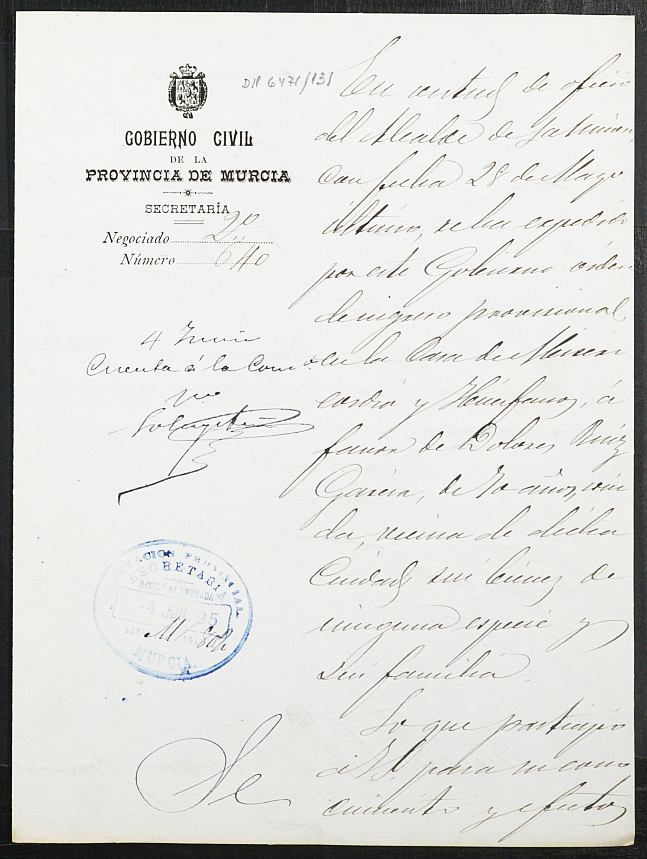 DIP 6471/131
GOBIERNO CIVIL
DE LA
PROVINCIA DE MURCIA
SECRETARÍA
Negociado 2º
Número 640
4 Junio
Cuenta á la Comi
on
En virtud de oficio
del Alcalde de La Union
con fecha 28 de Mayo
último, se ha expedido
por este Gobierno órden
de ingreso provisional,
en la Casa de Miseri
cordia y Huérfanos, á
favor de Dolores Ruiz
Garcia, de 70 años, viu
da, vecina de dicha
Ciudad, sin bienes de
ninguna especie y
sin familia.
Lo que participo
á V.S. para su cono
cimiento y efectos
DIPUTACION PROVINCIAL
SECRETARIA
REGTº DE ENTRADA
4 JUN 95
MURCIA
Se